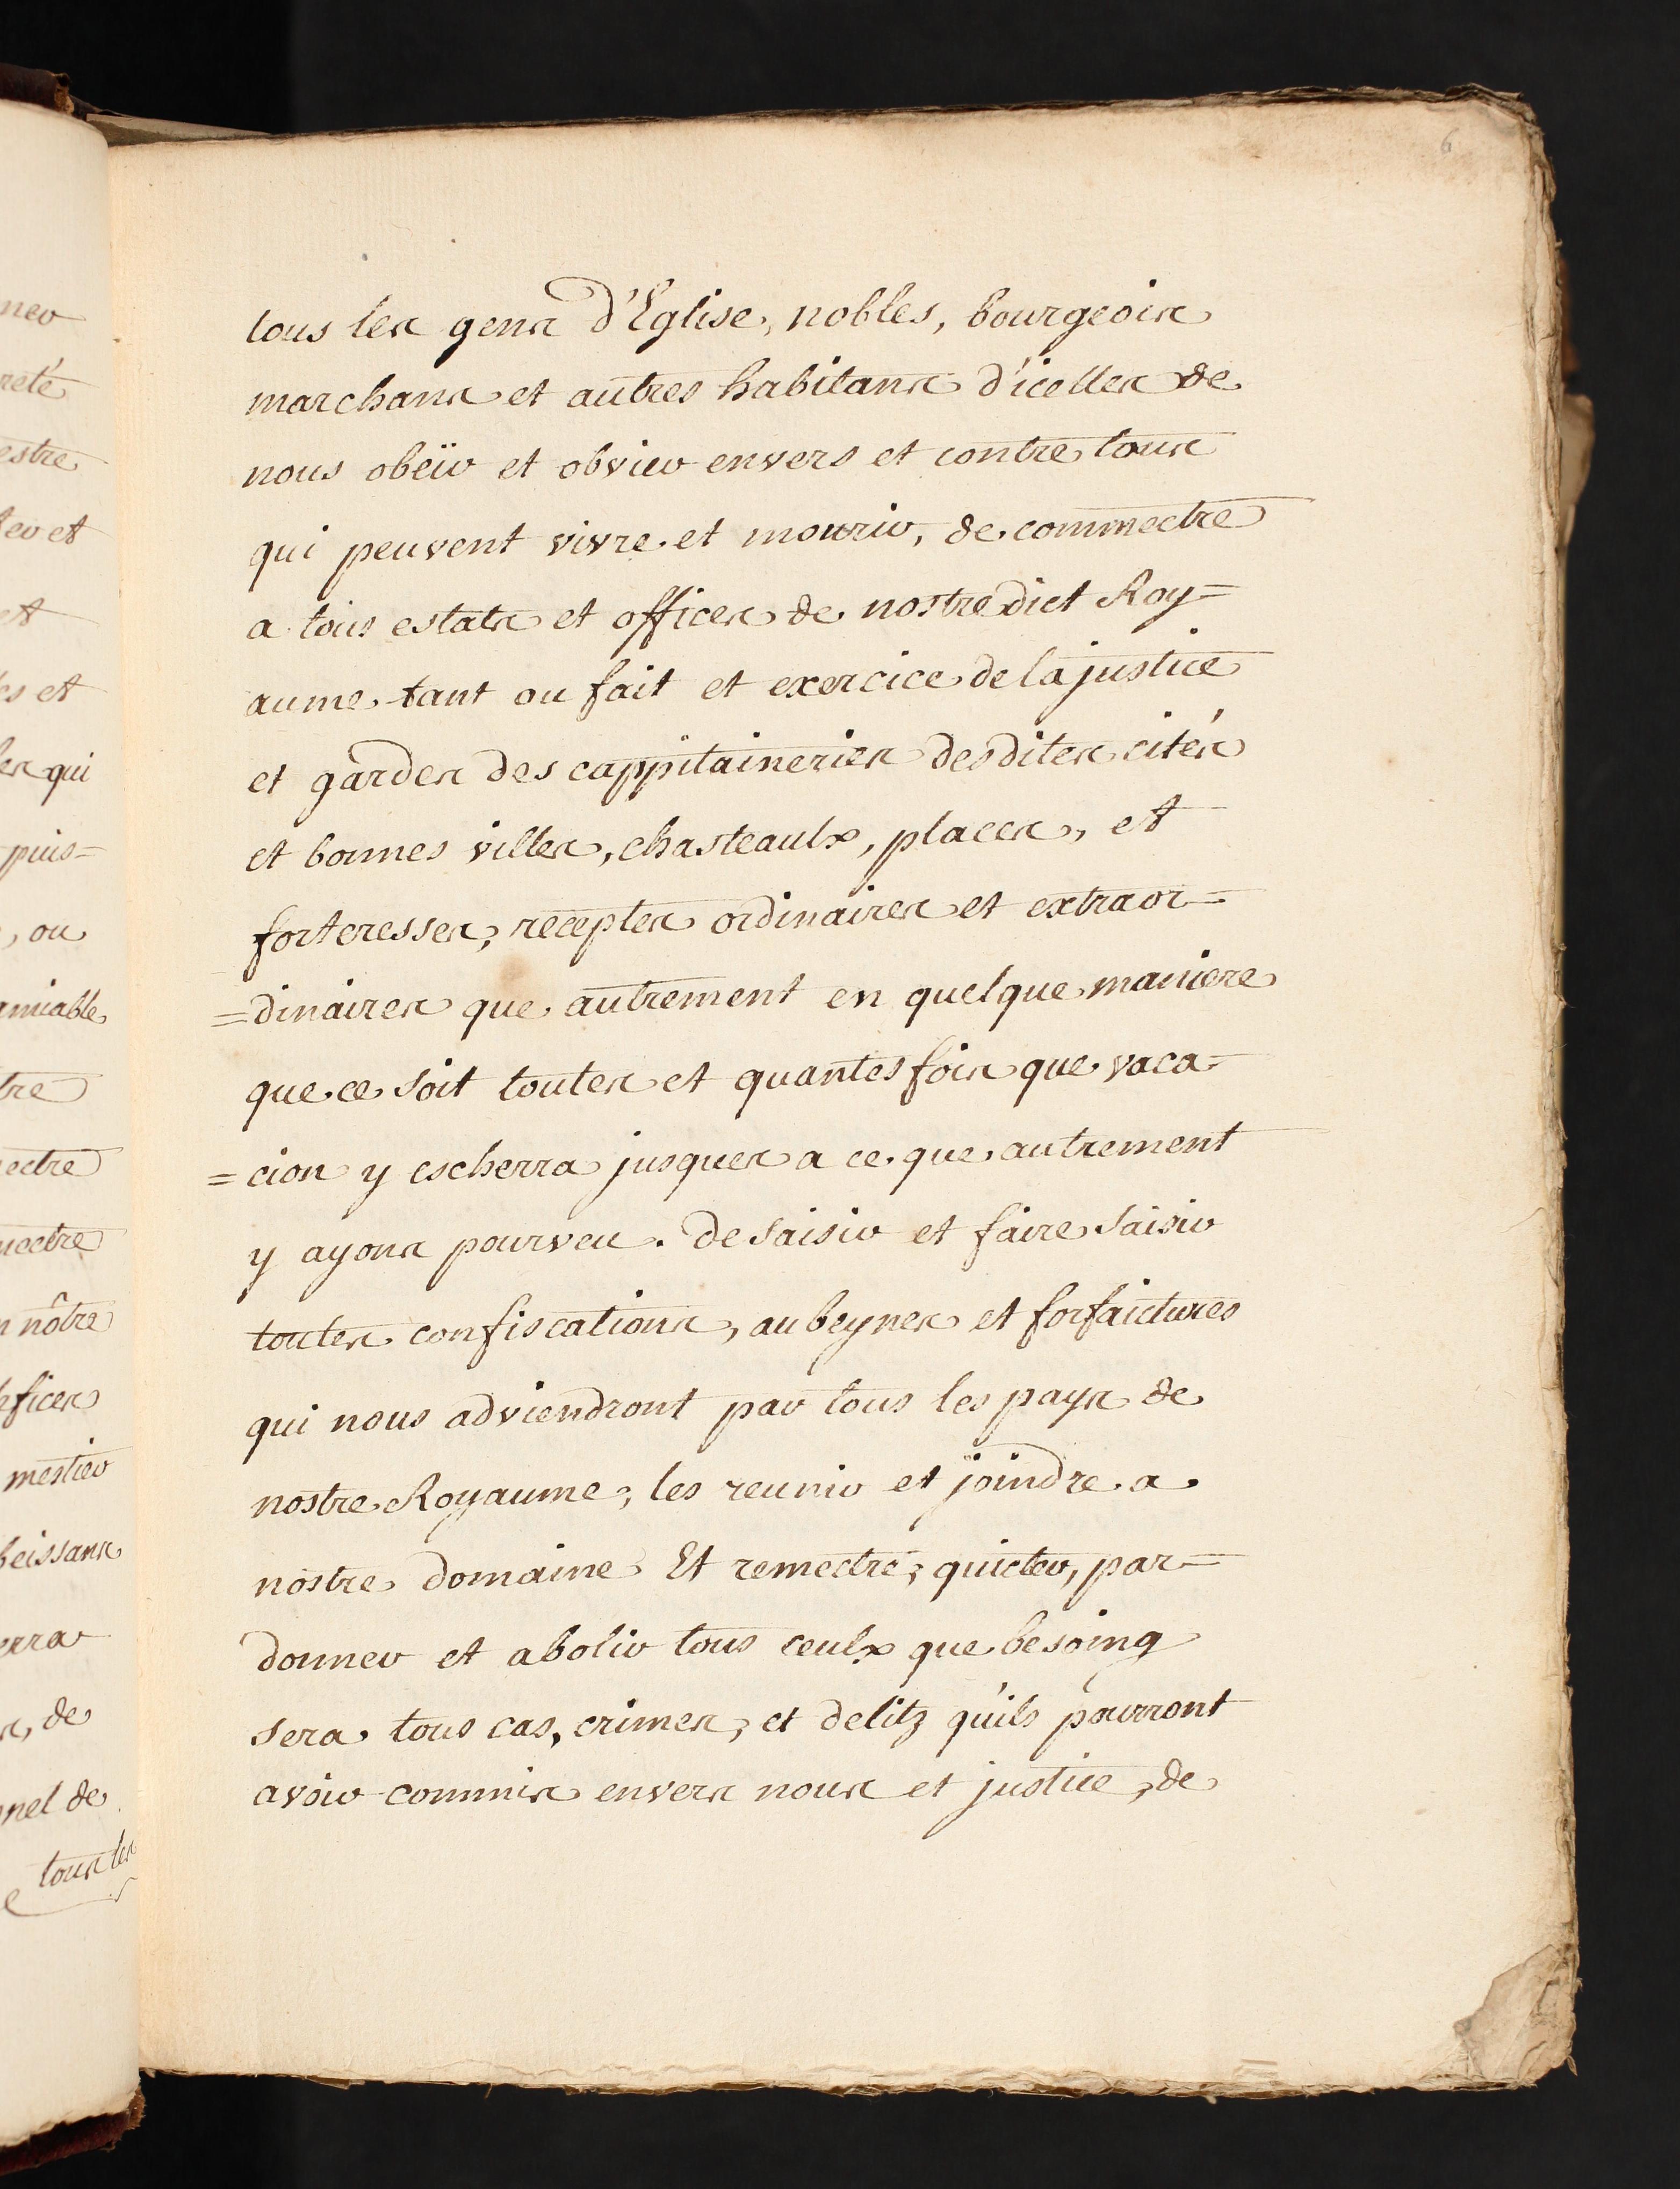 6
tous les gens d'Eglise, nobles, bourgeois
marchans et autres habitans d'icelles de
nous obëir et obvier envers et contre tous
qui peuvent vivre et mourir, de commectre
a tous estats et offices de nostredict Roy=
aume tant ou fait et exercice de la justice
et gardes des cappitaineries desdites cités
et bonnes villes, chasteaulx, places, et
forteresses, receptes ordinaires et extraor=
=dinaires que autrement en quelque maniere
que ce soit toutes et quantes fois que vaca=
=cion y escherra jusques a ce que autrement
y ayons pourveu. de saisir et faire saisir
toutes confiscations, aubeynes et forfaictures
qui nous adviendront par tous les pays de
nostre Royaume, les reunir et joindre a
nostre domaine Et remectre, quicter, par=
donner et abolir tous ceulx que besoing
sera tous cas, crimes, et delitz qu'ils pourront
avoir commis envers nous et justice, de